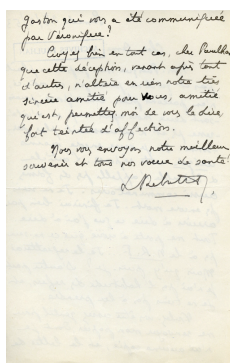 Gaston qui vous a été communiquée
par Véronique?
Croyez bien en tout cas, cher
que cette déception, venant après tant
d'autres, n'altère en rien notre très
sincère amitié pour vous, amitié
qui est, permettez moi de vous le dire,
fort teintée d'affection.
Nous vous envoyons notre meilleur
souvenir et tous nos vœux de santé.